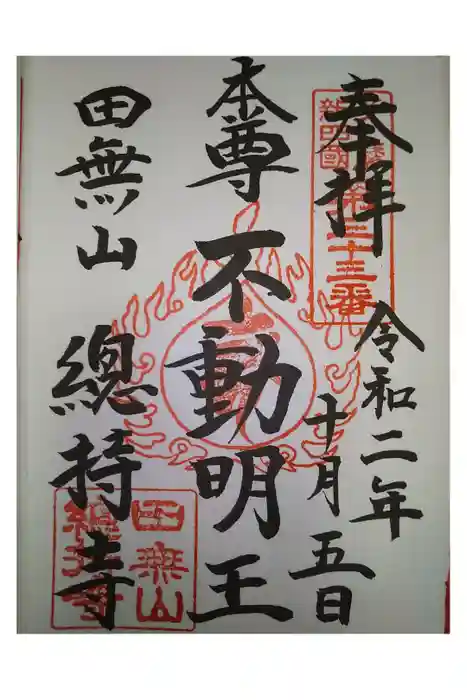 奉拝
令和二年
十月五日
本尊 不動明王
田無山 總持寺
第三十三番
田無山
總持寺